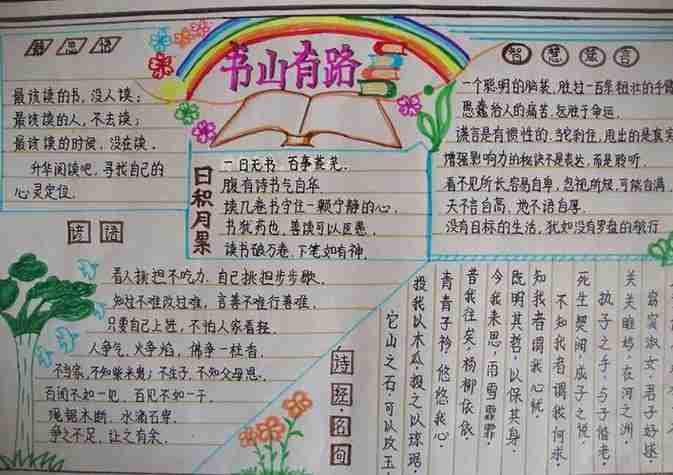 题思语
最该读的书，没人读；
最该读的人，不去读；
最该读的时候，没在读。
升华阅读吧，寻找自己的
心灵定位。
书山有路
日积月累
一日无书 百事荒芜.
腹有诗书气自华
读几卷书守住一颗宁静的心.
书犹药也，善读可以医愚.
读书破万卷、下笔如有神.
智慧箴言
一个聪明的脑袋，胜过一百条粗壮的手臂
愚蠢给人的痛苦，远胜于命运.
谎言是有惯性的，当说到住，甩出的是真实
增强影响力的秘诀不是表达，而是聆听.
看不见所长，容易自卑，忽视所短，可能自满.
天不言自高，地不语自厚.
没有目标的生活，犹如没有罗盘的航行
谚语
看人挑担不吃力.自己挑担步步歇.
知过不难改过难，言善不难行善难.
只要自己上进，不怕人家看轻.
人争气，火争焰，佛争一炷香.
不当家，不知柴米贵；不生子，不知父母恩.
百闻不如一见，百见不如一干.
绳锯木断，水滴石穿.
争之不足，让之有余.
诗经·名句
窈窕淑女，君子好逑
关关雎鸠，在河之洲
执子之手，与子偕老
死生契阔，成子之说
不知我者，谓我何求.
知我者，谓我心忧
既明其哲，以保其身
今我来思，雨雪霏霏
昔我往矣，杨柳依依
青青子衿，悠悠我心
投我以木瓜，投之以琼琚.
它山之石，可以攻玉